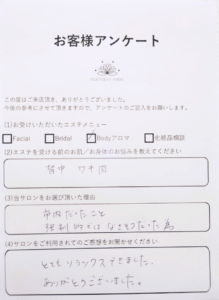 お客様アンケート
この度はご来店頂き、ありがとうございました。
今後の参考にさせて頂きますので、アンケートのご記入をお願いします。
(1)お受けいただいたエステメニュー
Facial Bridal Bodyアロマ 化粧品相談
(2)エステを受ける前のお肌／お身体のお悩みを教えてください
背中
(3)当サロンをお選び頂いた理由
(4)サロンをご利用されてのご感想をお聞かせください
とてもリラックスできました。
ありがとうございました。